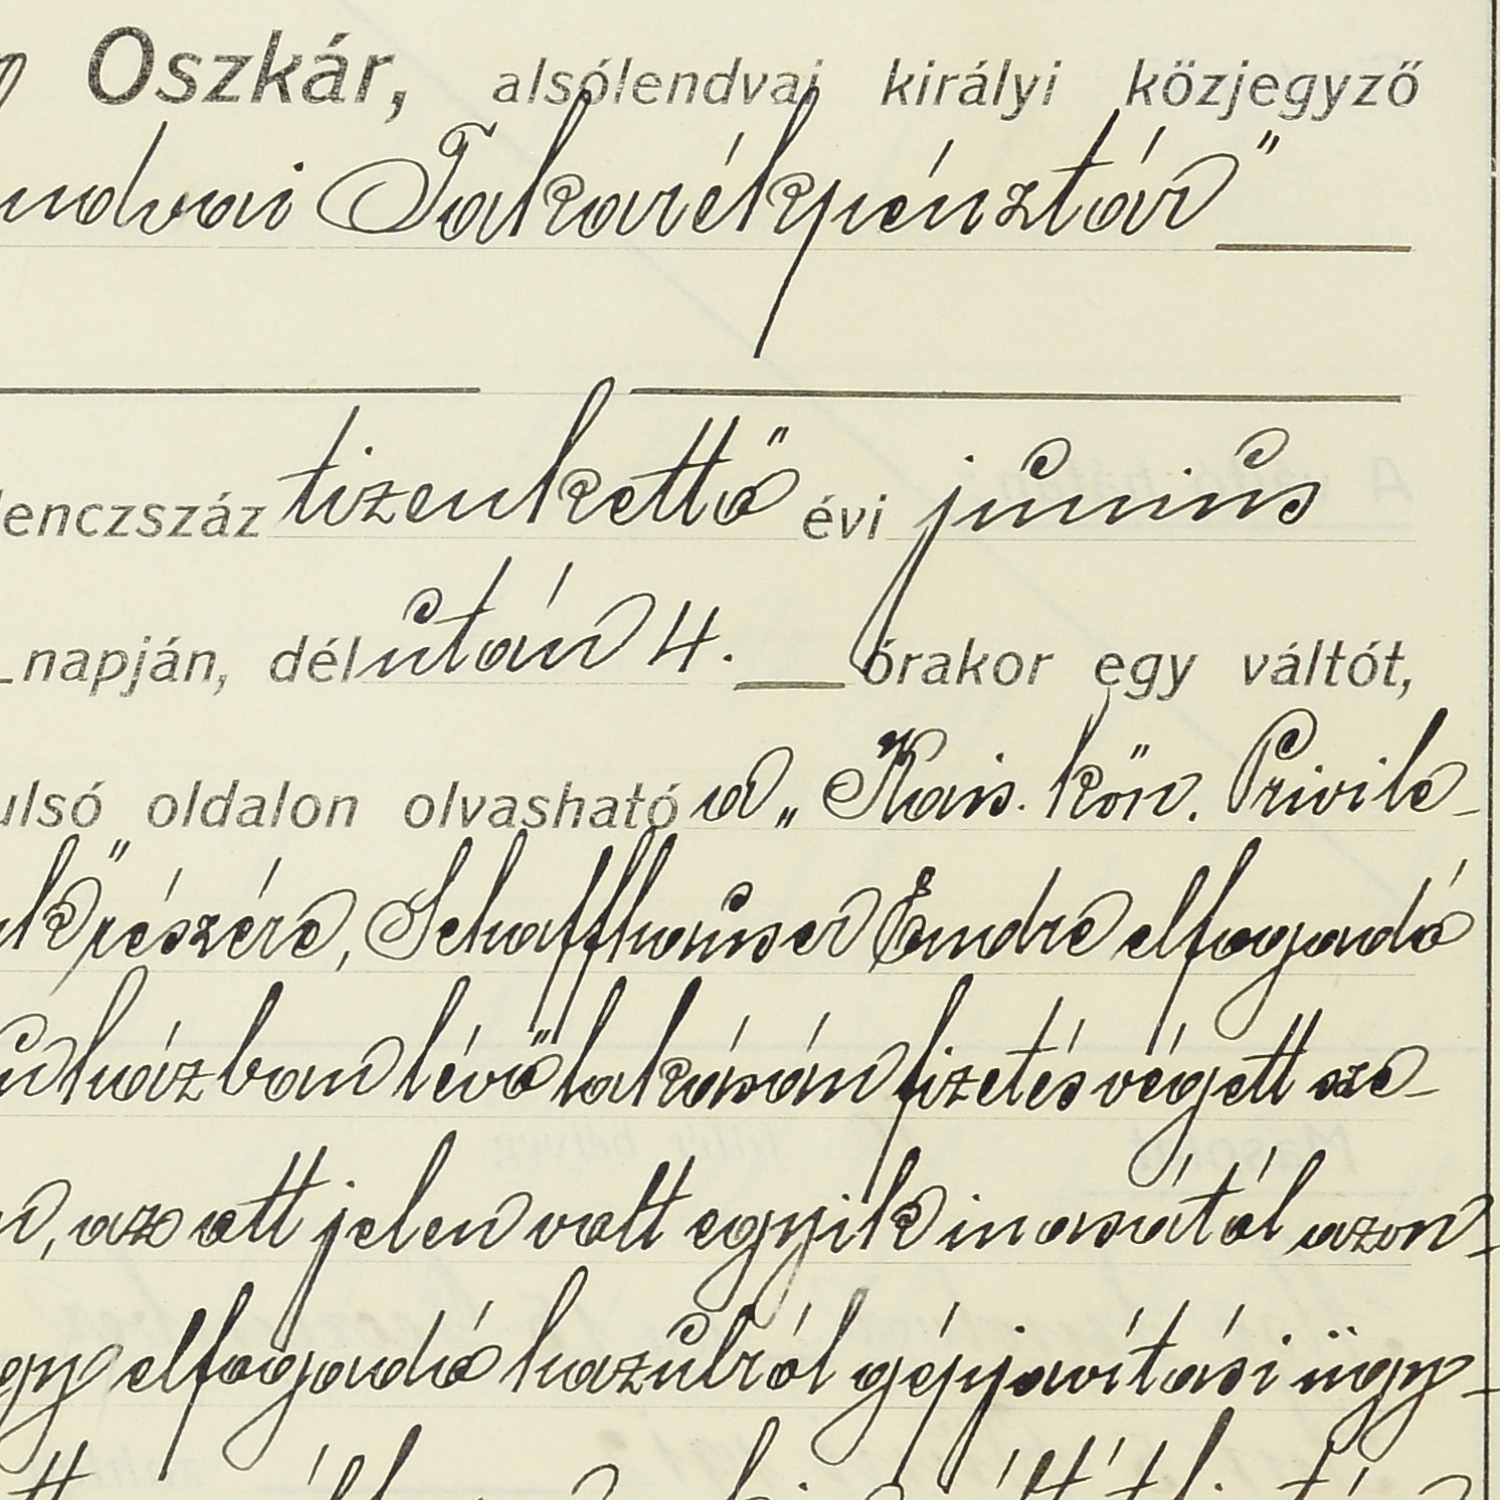 Oszkár, alsólendvai királyi közjegyző
ndvai Takarékpénztár"
lenczszáz tizenkettő évi június
napján, délután 4. órakor egy váltót,
ulsó oldalon olvasható a „Kais. kön. Privile-
k" részére, Schaffhauser Endre elfogadó
házban lévő lakásán fizetés végett sze-
n, az ott jelen volt egyik inasától azon-
gy elfogadó hazulról gépjavítási ügy-